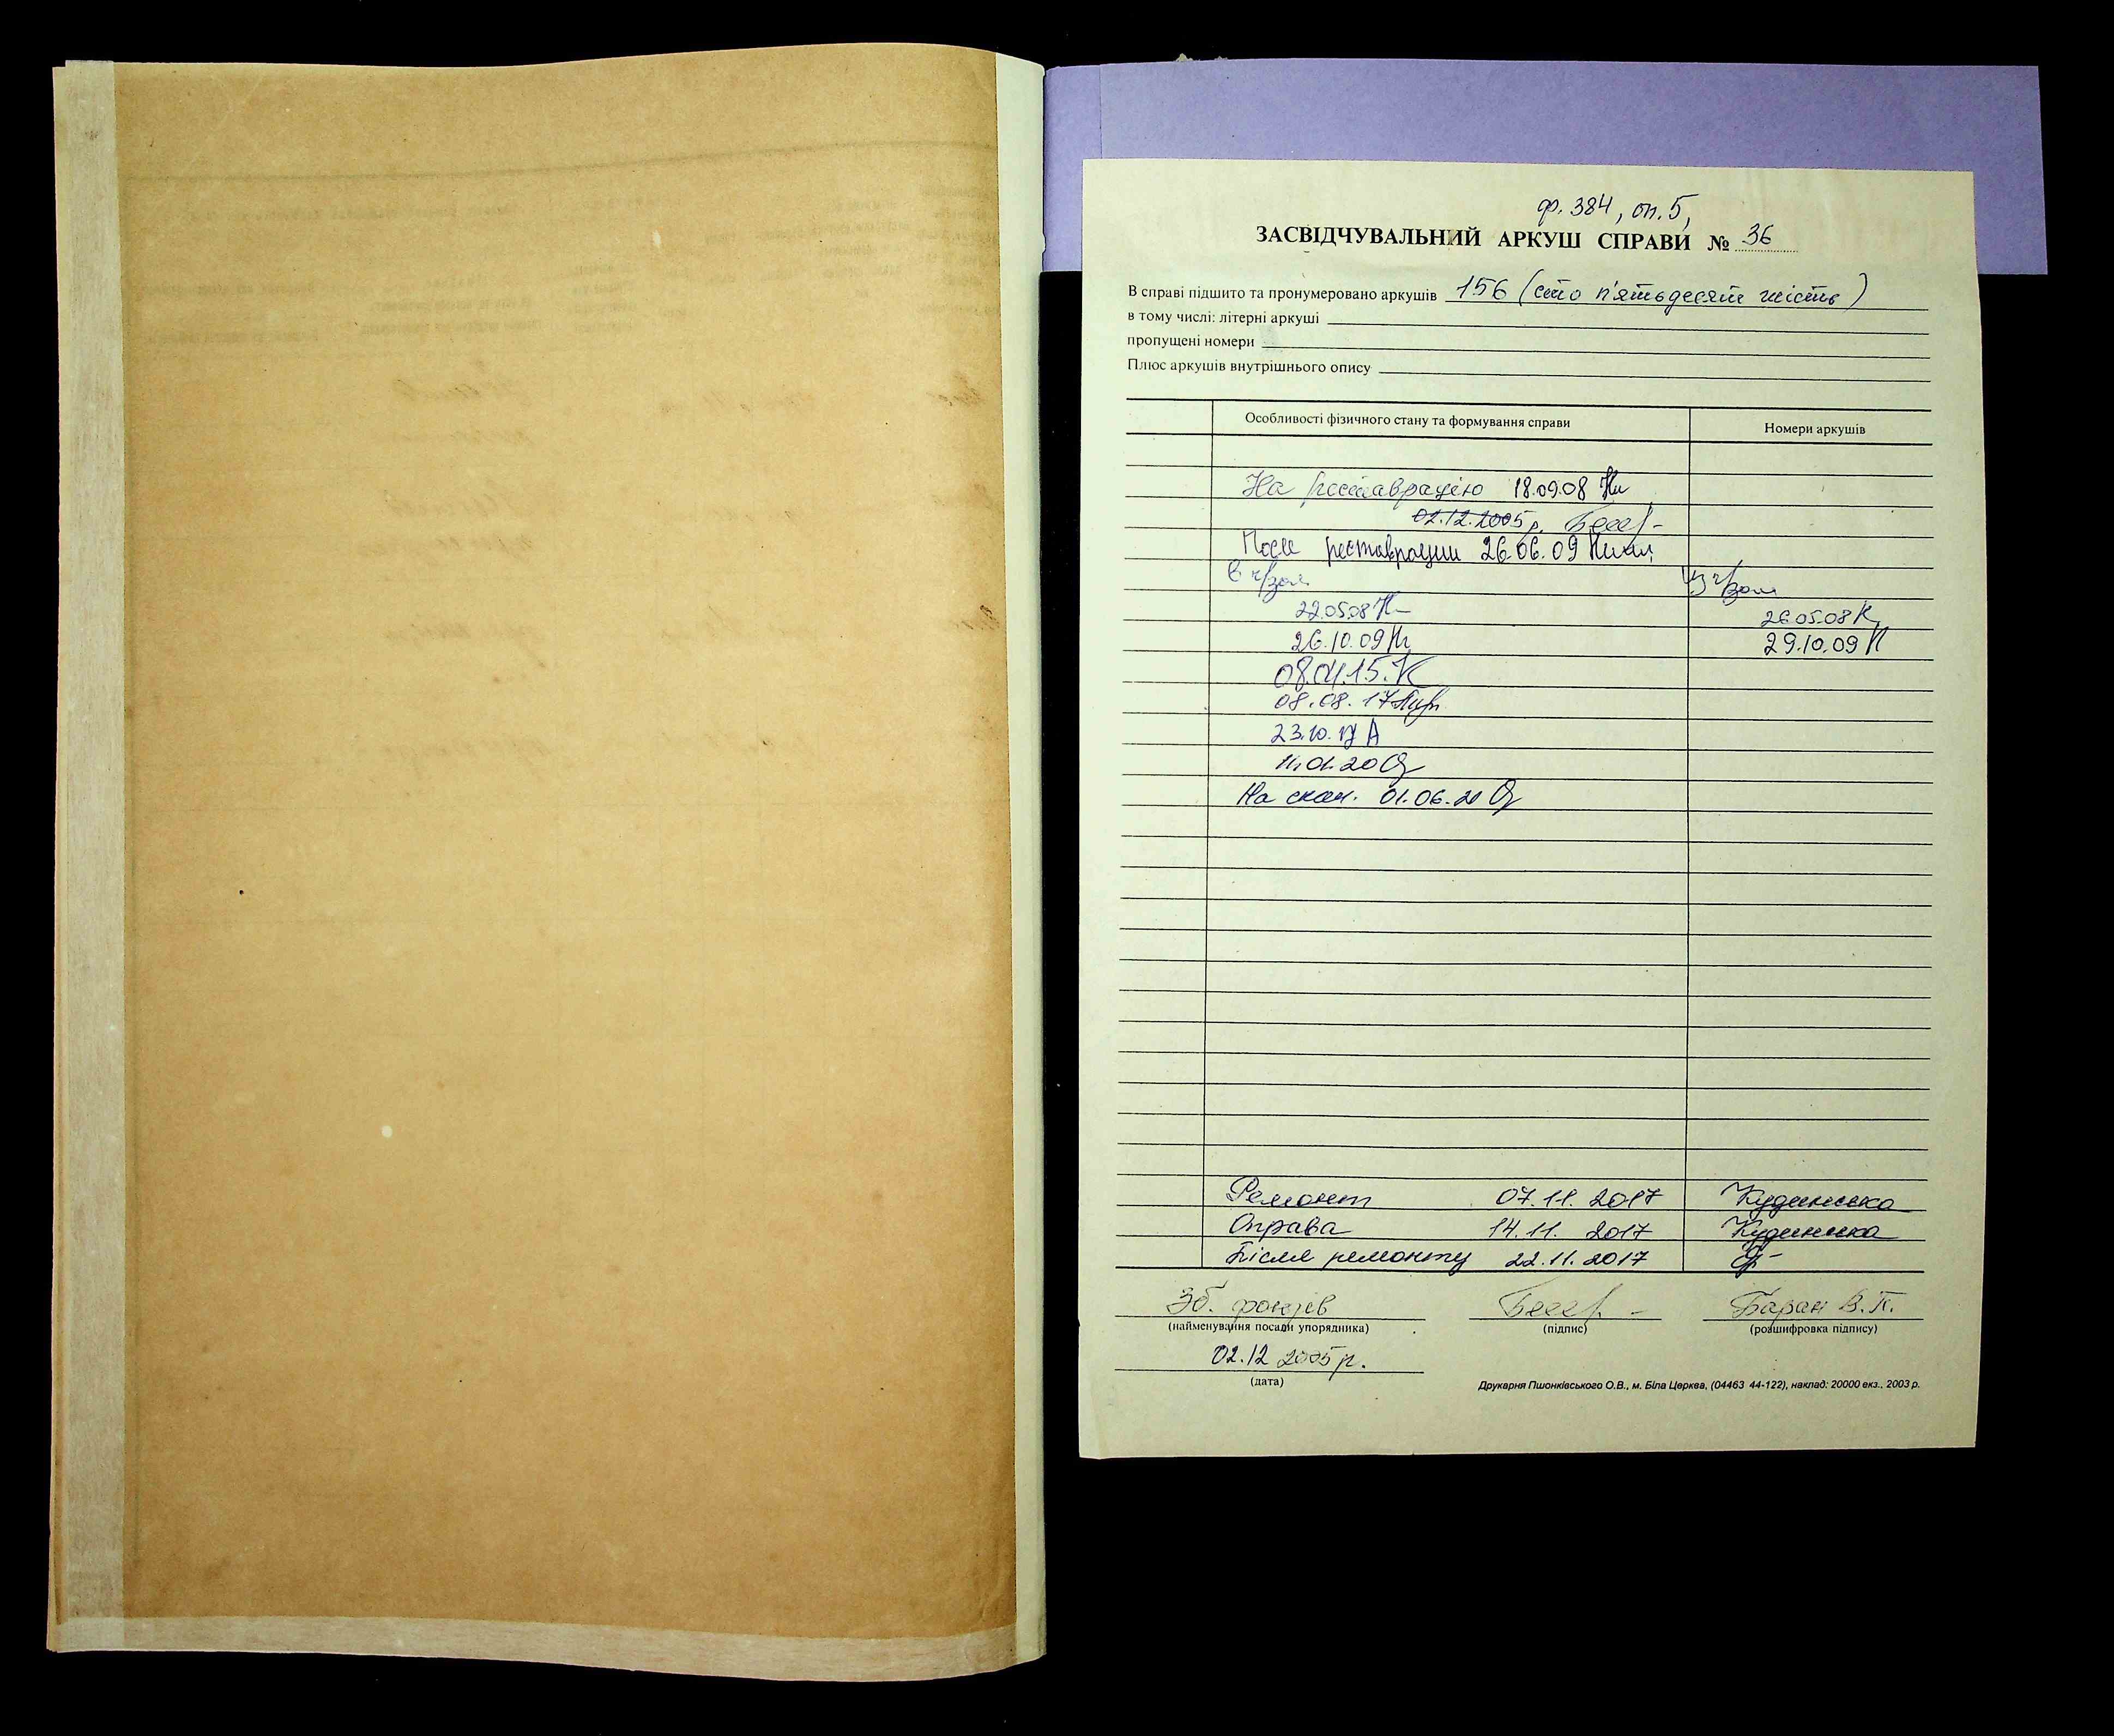 ф. 384, оп. 5,
ЗАСВІДЧУВАЛЬНИЙ АРКУШ СПРАВИ № 36
В справі підшито та пронумеровано аркушів 156 (сто п'ятьдесят шість)
в тому числі: літерні аркуші
пропущені номери
Плюс аркушів внутрішнього опису
Особливості фізичного стану та формування справи Номери аркушів
На реставрацію 18.09.08
02.12.2005 р.
После реставрации 26.06.09
В ч/зал Из ч/зала
22.05.08 26.05.08
26.10.09 29.10.09
08.04.15.
08.08.17
23.10.17
11.01.20
На скан. 01.06.21
Ремонт 07.11.2017
Оправа 14.11.2017
Після ремонту 22.11.2017
Зб. фондів Баран В.П.
(найменування посади упорядника) (підпис) (розшифровка підпису)
02.12 2005 р.
(дата)
Друкарня Пшонківського О.В., м. Біла Церква, (04463 44-122), наклад: 20000 екз., 2003 р.